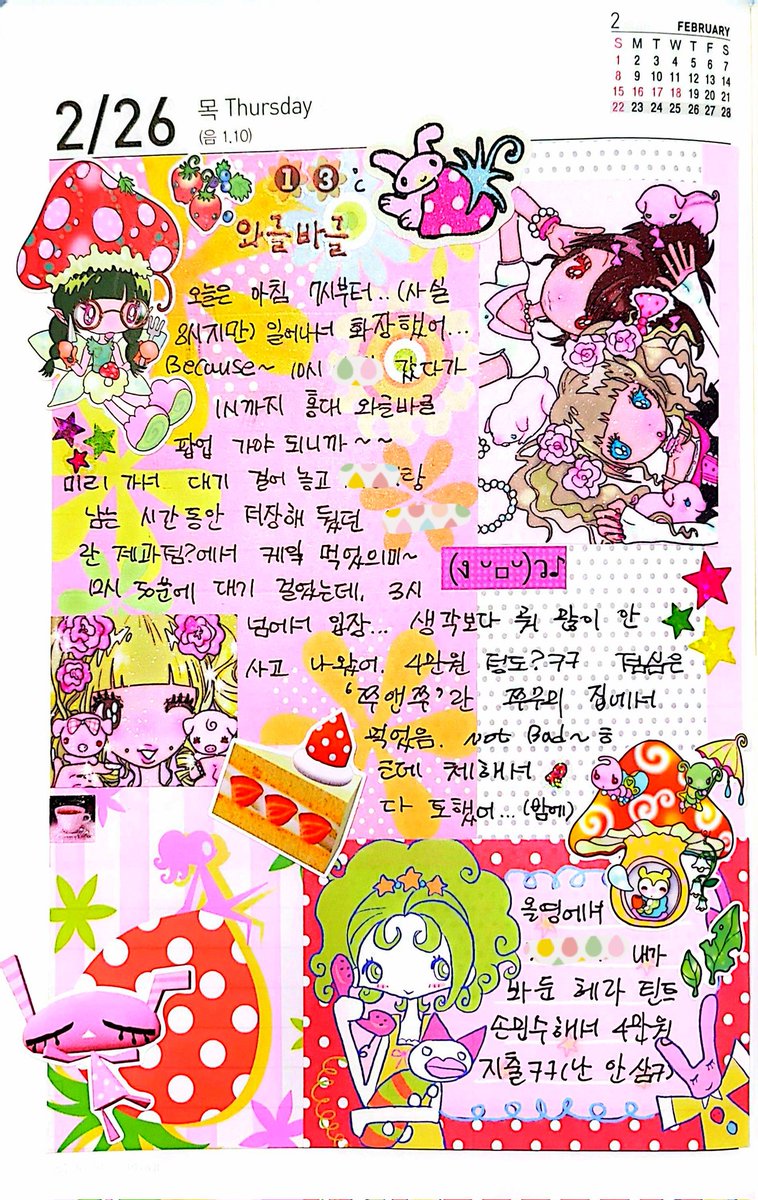 2 FEBRUARY
S M T W T F S
1 2 3 4 5 6 7
8 9 10 11 12 13 14
15 16 17 18 19 20 21
22 23 24 25 26 27 28
2/26 목 Thursday
(음 1.10)
13℃
와글바글
오늘은 아침 7시부터..(사실
8시지만) 일어나서 화장했어...
Because~ 10시 갔다가
1시까지 홍대 와글바글
팝업 가야 되니까~~
미리 가서 대기 걸어 놓고 랑
남는 시간동안 저장해 뒀던
란 제과점?에서 케잌 먹었으미~
12시 50분에 대기 걸었는데, 3시
(ง ᵕ□ᵕ)ว♪
넘어서 입장... 생각보다 뭐 많이 안
사고 나왔어. 4만원 정도?ㅋㅋ 점심은
'쭈앤쭈'란 쭈꾸미 집에서
먹었음. not Bad~ㅎ
근데 체해서
다 토했어...(밤에)
올영에서
내가
봐둔 헤라 틴트
손민수해서 4만원
지출ㅋㅋ(난 안삼ㅋ)